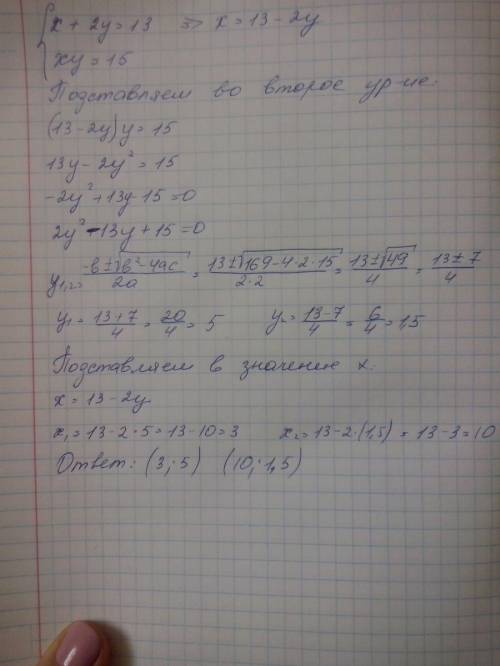 { x + 2y = 13 ⇒ x = 13 - 2y
xy = 15
Подставляем во второе ур-ие:
(13 - 2y)y = 15
13y - 2y² = 15
-2y² + 13y - 15 = 0
2y² - 13y + 15 = 0
y₁,₂ = (-в ± √(в² - 4ac))/2a = (13 ± √(169 - 4·2·15))/(2·2) = (13 ± √49)/4 = (13 ± 7)/4
y₁ = (13 + 7)/4 = 20/4 = 5 y₂ = (13 - 7)/4 = 6/4 = 1,5
Подставляем в значение x:
x = 13 - 2y
x₁ = 13 - 2·5 = 13 - 10 = 3 x₂ = 13 - 2·(1,5) = 13 - 3 = 10
Ответ: (3; 5) (10; 1,5)